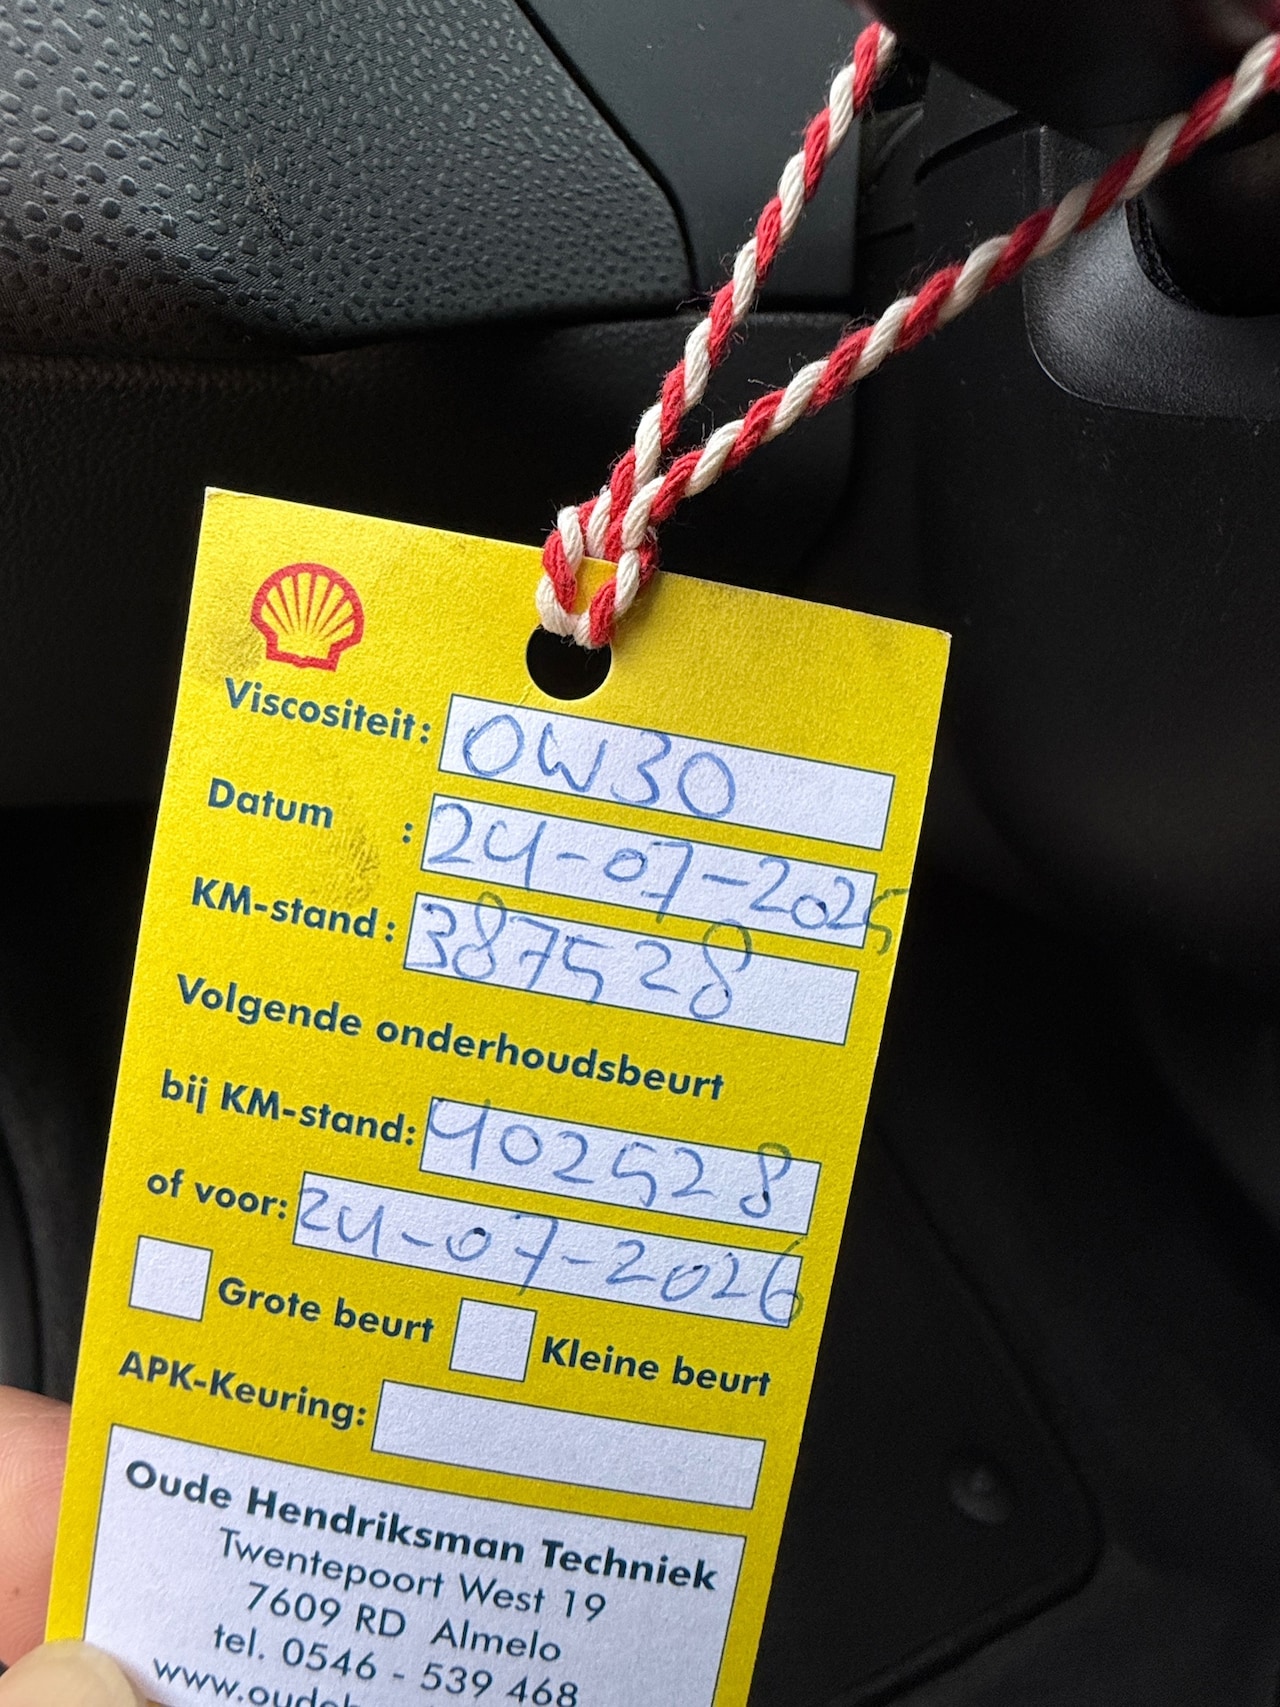 Viscositeit: 0W30
Datum : 24-07-2025
KM-stand: 387528
Volgende onderhoudsbeurt
bij KM-stand: 402528
of voor: 24-07-2026
Grote beurt Kleine beurt
APK-Keuring:
Oude Hendriksman Techniek
Twentepoort West 19
7609 RD Almelo
tel. 0546 - 539 468